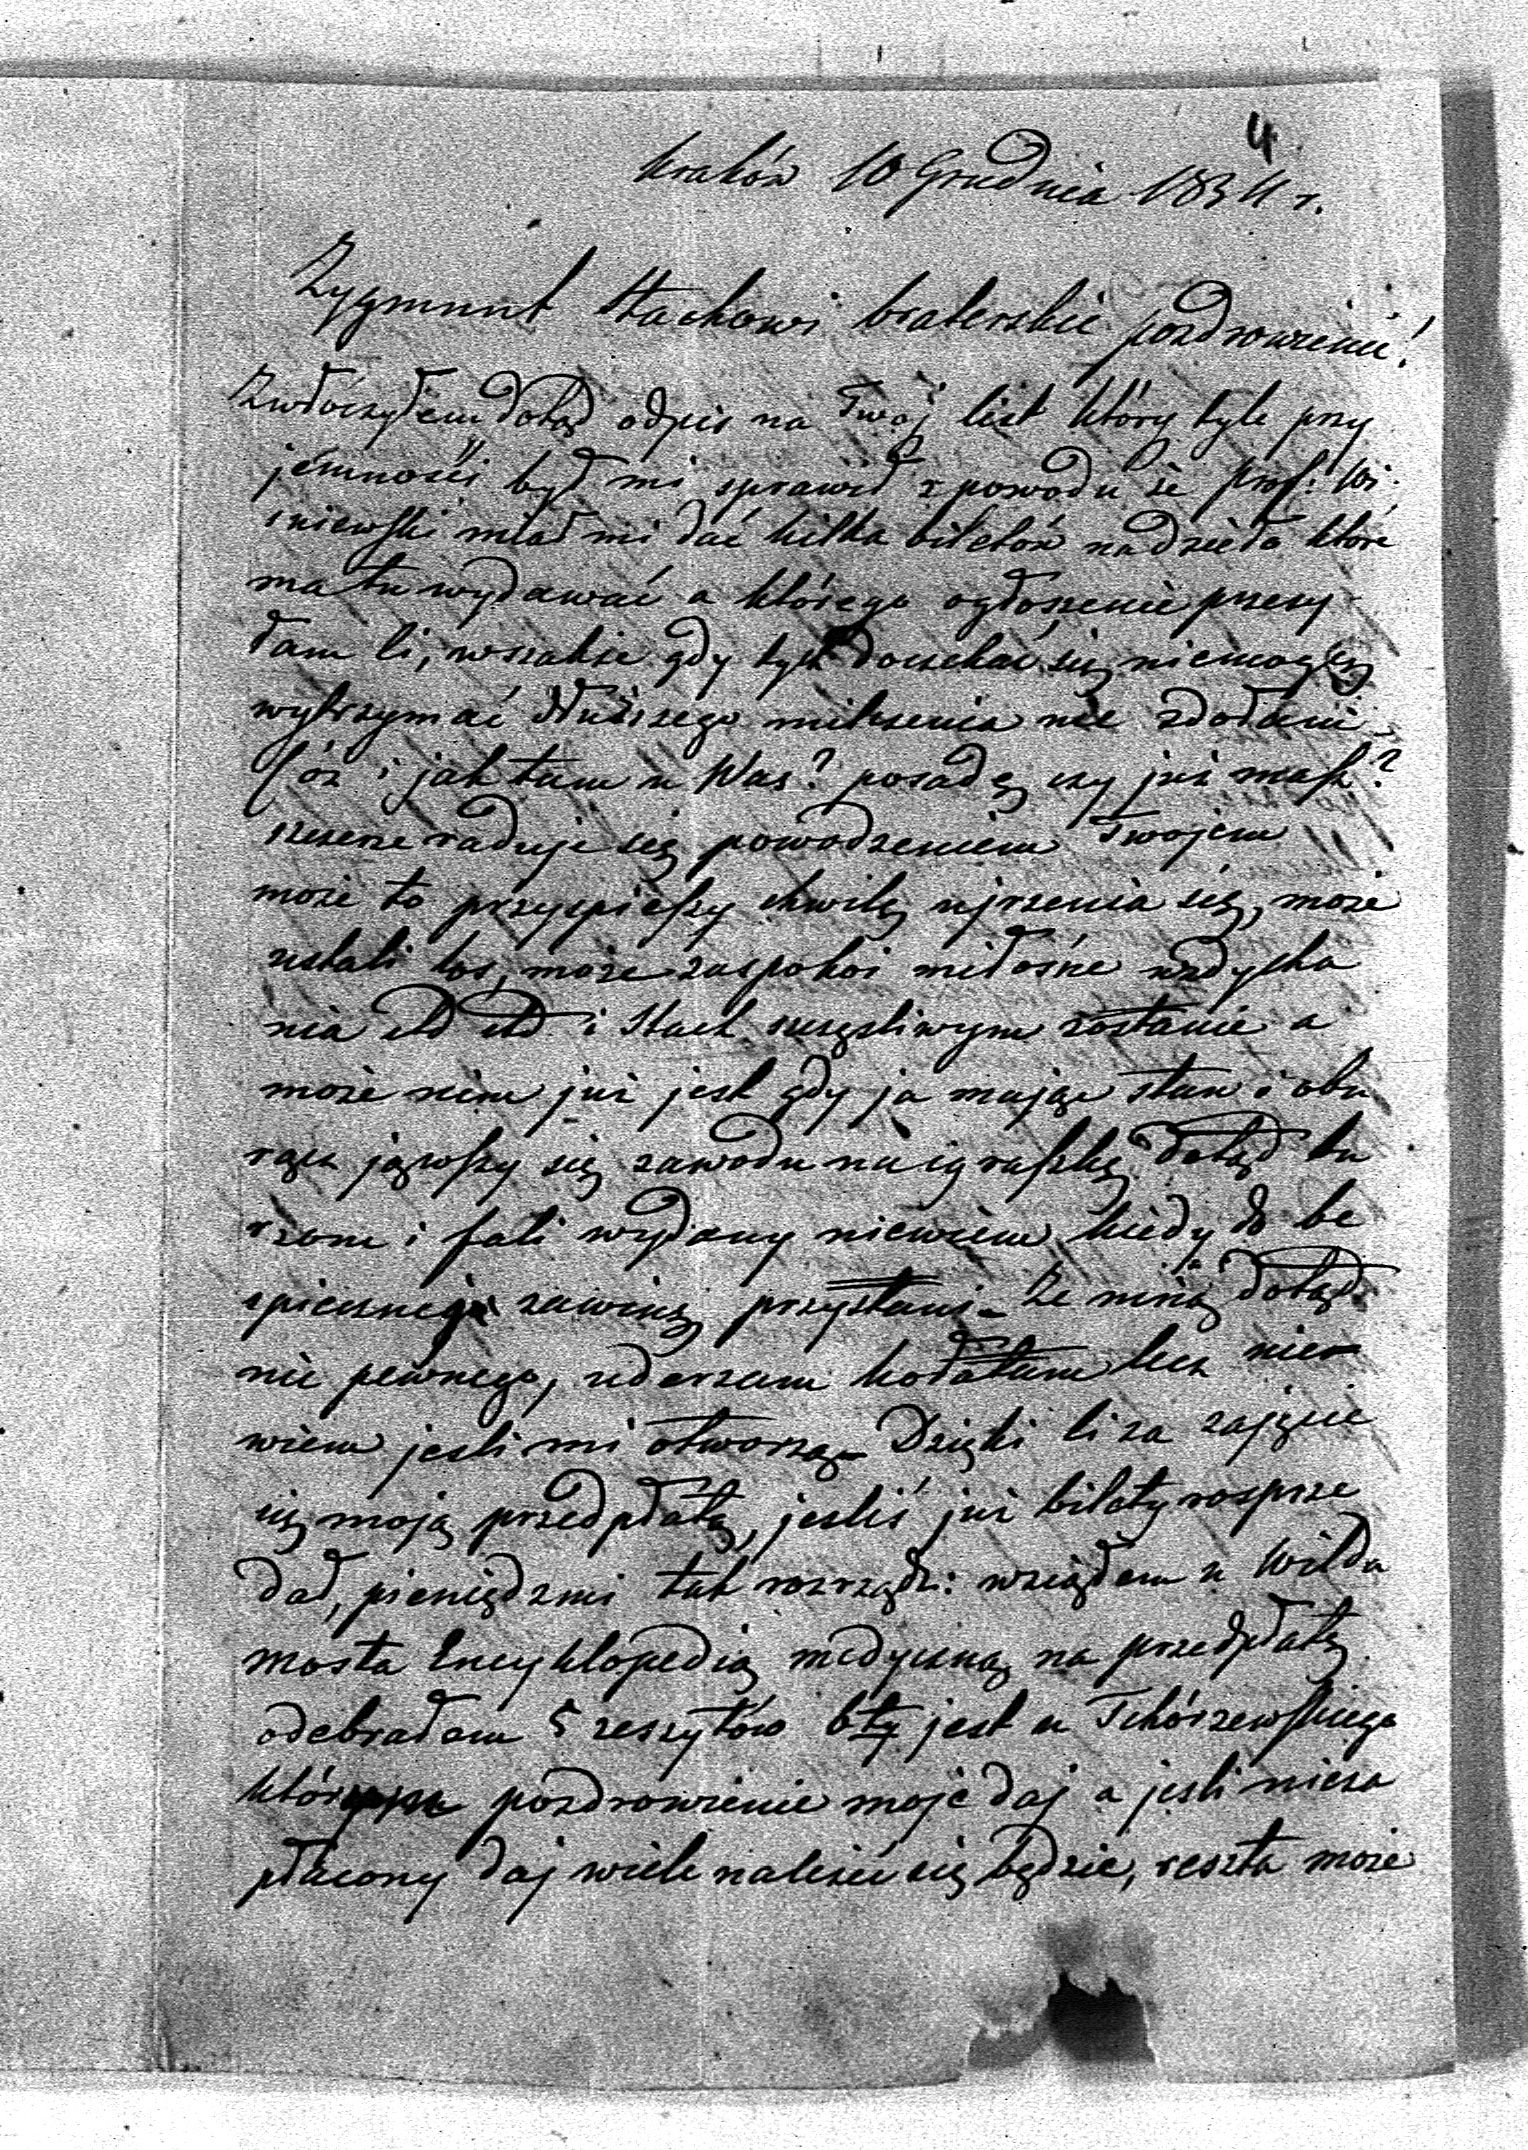 4.
Kraków 10 Grudnia 1834 r.
Zygmunt Stachowi braterskie pozdrowienie!
Zwłóczyłem dotąd odpis na Twój list który tyle przy
jemności był mi sprawił z powodu że Prof: Wi
sniewski miał mi dać kilka biletów na dzieło które
ma tu wydawać a którego ogłoszenie przesy
łam Ci, wszakże gdy tych doczekać się niemogę
wytrzymać dłuższego milczenia nie zdołam
Cóż i jak tam u Was? posadę czy już masz?
szczerze raduję się powodzeniem Twojem
może to przyspieszy chwilę ujrzenia się, może
ustali los, może zaspokoi miłośne wzdycha
nia etd etd i Stach szczęśliwym zostanie a
może nim już jest gdy ja mając stan i obu
rącz jąwszy się zawodu na igraszkę dotąd bu
rzom i fali wydany niewiem kiedy do be
spiecznej zawinę przystani – Ze mną dotąd
nic pewnego, uderzam kołatam lecz nie
wiem jesli mi otworzą – Dzięki Ci za zajęcie
się moją przedpłatą, jesliś już bilety rosprze
dał, pieniędzmi tak rozrządź: wziąłem u Wilda
mosta Encyklopedią medyczną na przedpłatę
odebrałem 5 zeszytów 6ty jest u Tchórzewskiego
pozdrowienie moje daj a jesli nieza
płacony daj wiele należeć się będzie, reszta może